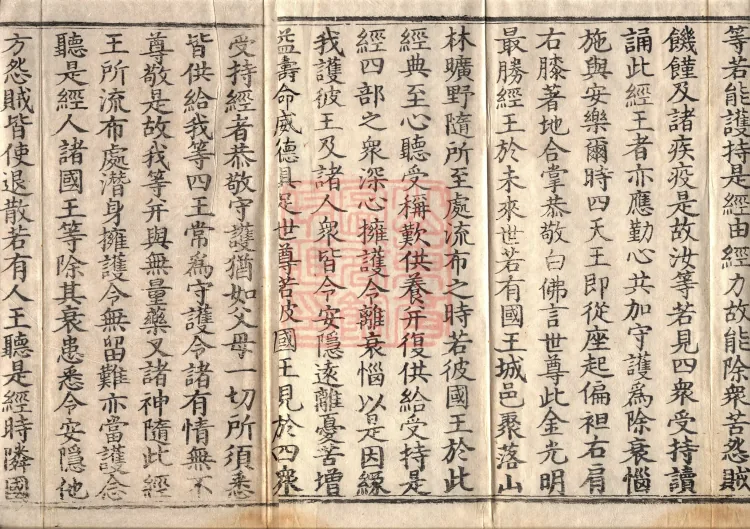 等若能護持是經由經力故能除衆苦怨賊
饑饉及諸疾疫是故汝等若見四衆受持讀
誦此經王者亦應勤心共加守護爲除衰惱
施與安樂爾時四天王即從座起偏袒右肩
右膝著地合掌恭敬白佛言世尊此金光明
最勝經王於未來世若有國王城邑聚落山
林曠野隨所至處流布之時若彼國王於此
經典至心聽受稱歎供養并復供給受持是
經四部之衆深心擁護令離衰惱以是因緣
我護彼王及諸人衆皆令安隱遠離憂苦增
益壽命威德具足世尊若彼國王見於四衆
受持經者恭敬守護猶如父母一切所須悉
皆供給我等四王常爲守護令諸有情無不
尊敬是故我等并與無量藥叉諸神隨此經
王所流布處潛身擁護令無留難亦當護念
聽是經人諸國王等除其衰患悉令安隱他
方怨賊皆使退散若有人王聽是經時隣國